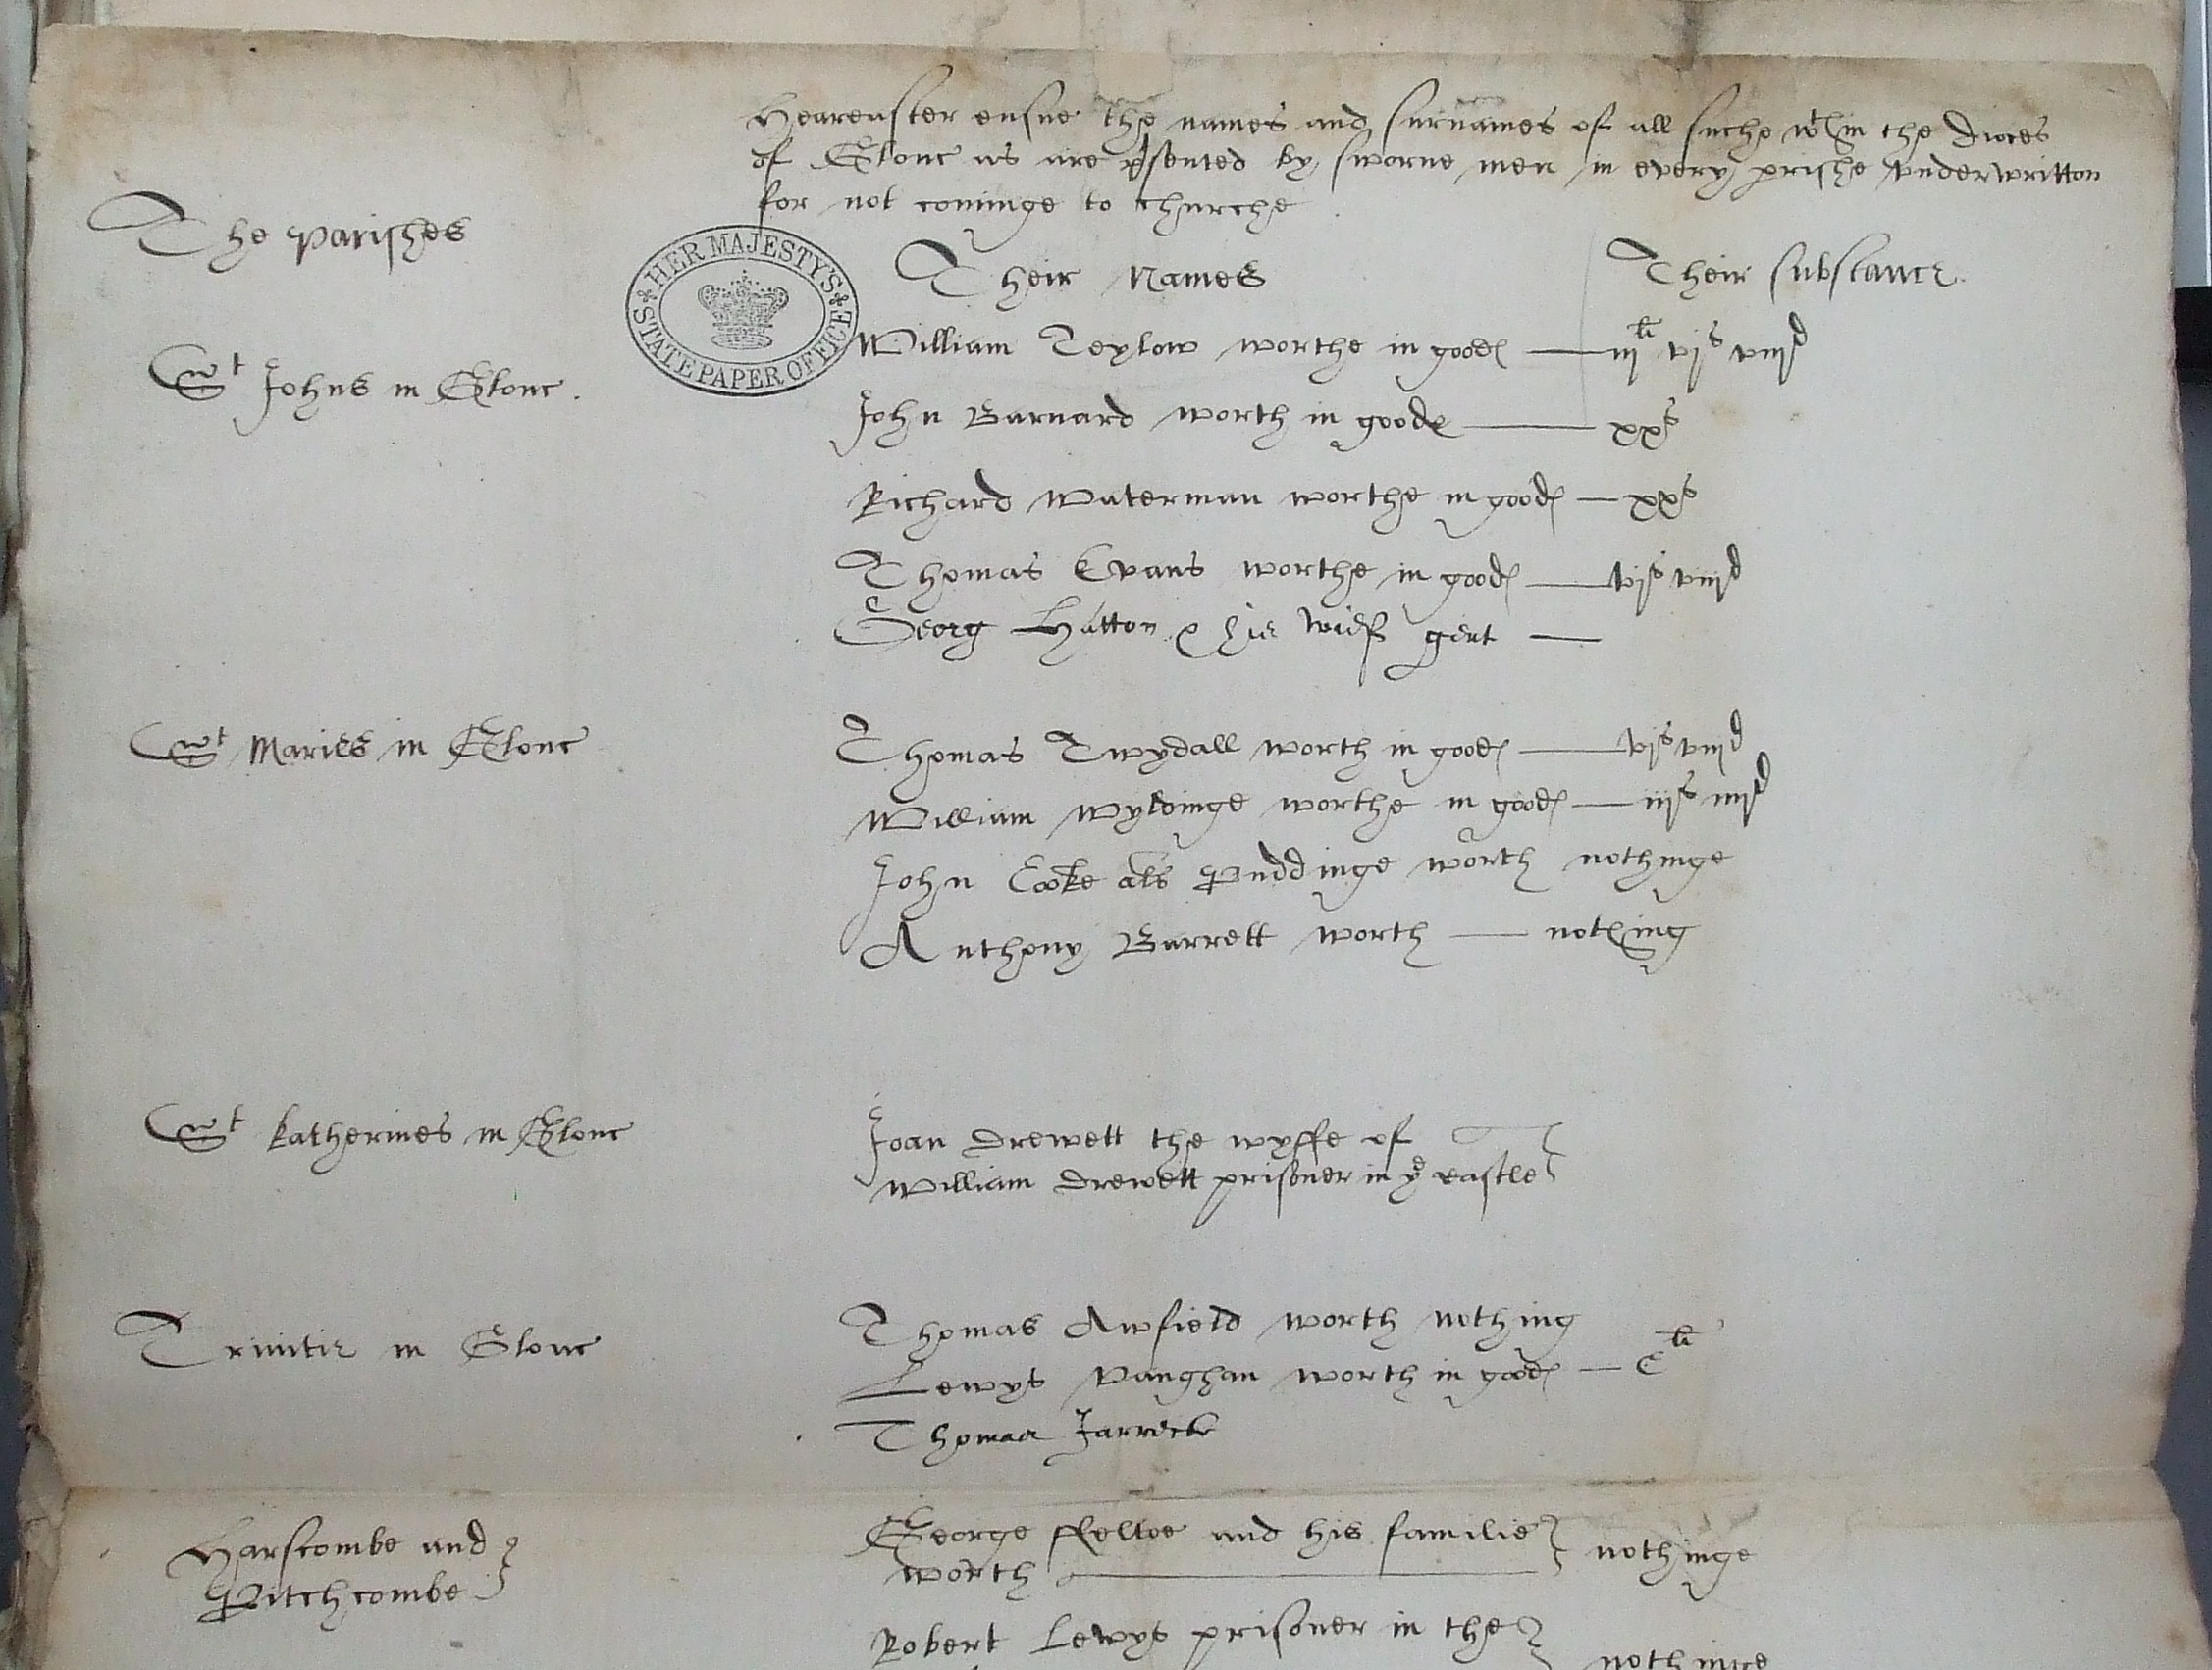 Hereafter ensue the names and surnames of all suche wthin the dioces
of Glouc as are psented by sworne men in every prishe underwritton
for not cominge to churche
The parishes
Their Names
Their substance
HER MAJESTY'S
STATE PAPER OFFICE
St Johns in Glouc.
William Teylow worthe in goodes — iijli vjs viijd
John Barnard worth in goodes — xxs
Richard Waterman worthe in goodes — xxs
Thomas Evans worthe in goodes — vjs viijd
Georg Hatton & his wief gent —
St Maries in Glouc
Thomas Twydall worth in goodes — vjs viijd
William Wyldinge worthe in goodes — iijs iiijd
John Cooke als Puddinge worth nothinge
Anthony Barrett worth — nothing
St Katherines in Glouc
Joan Drewett the wyffe of
William Drewett prisoner in ye castle
Trinitie in Glouc
Thomas Awfield worth nothing
Lewys Vaughan worth in goodes — Cli
Thomas
Harscombe and
Pitchcombe
George ffeltoe and his familie
worth nothinge
Robert Lewys prisoner in the
nothinge